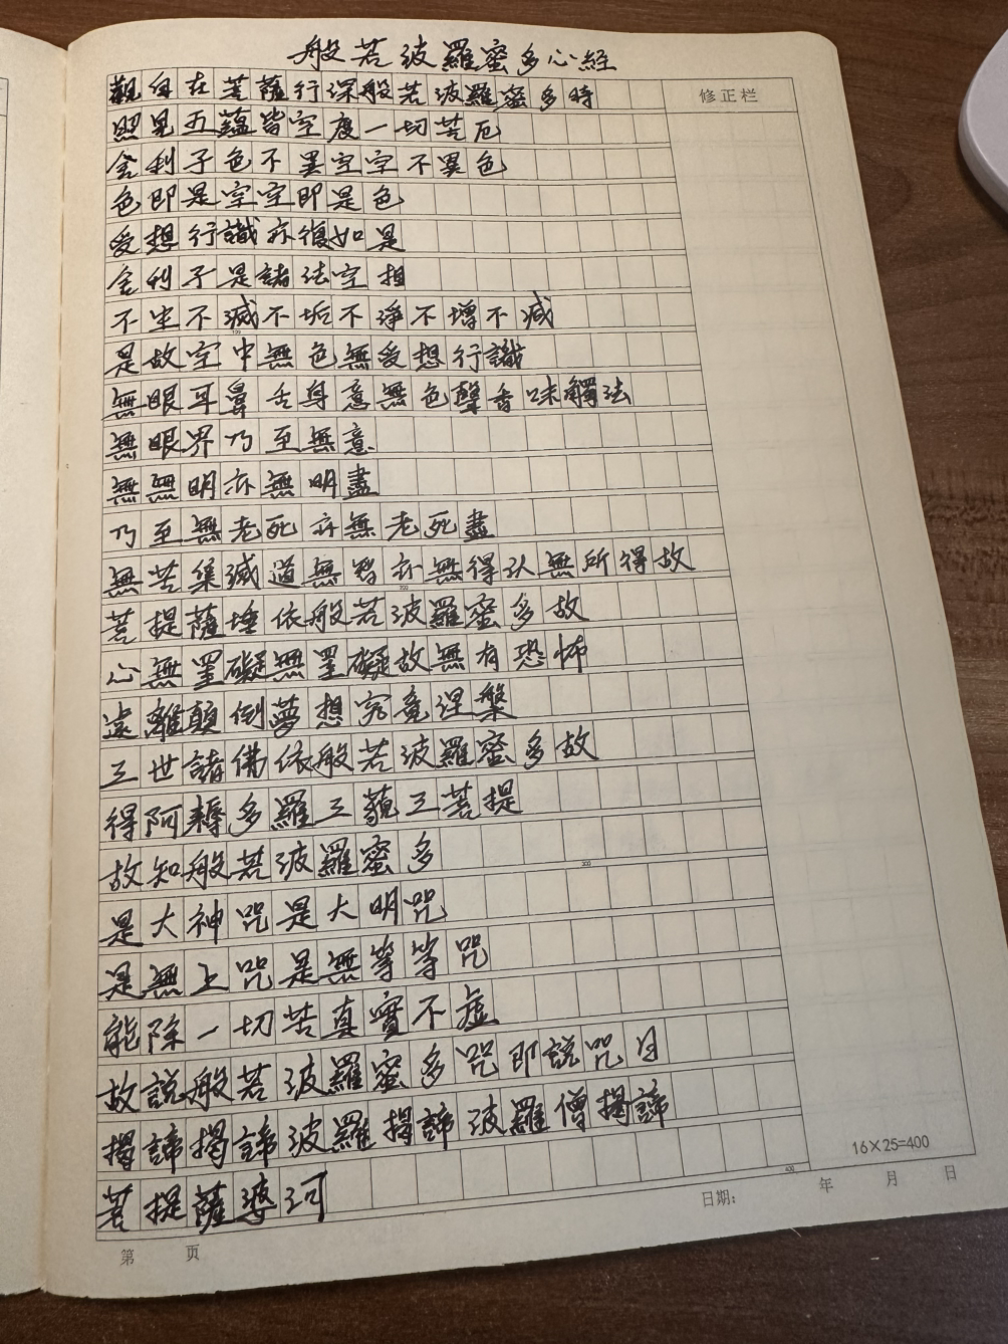 般若波羅蜜多心經
觀自在菩薩行深般若波羅蜜多時
修正栏
照見五蘊皆空度一切苦厄
舍利子色不異空空不異色
色即是空空即是色
受想行識亦復如是
舍利子是諸法空相
不生不滅不垢不淨不增不減
是故空中無色無受想行識
無眼耳鼻舌身意無色聲香味觸法
無眼界乃至無意
無無明亦無明盡
乃至無老死亦無老死盡
無苦集滅道無智亦無得以無所得故
菩提薩埵依般若波羅蜜多故
心無罣礙無罣礙故無有恐怖
遠離顛倒夢想究竟涅槃
三世諸佛依般若波羅蜜多故
得阿耨多羅三藐三菩提
故知般若波羅蜜多
是大神咒是大明咒
是無上咒是無等等咒
能除一切苦真實不虛
故說般若波羅蜜多咒即說咒曰
揭諦揭諦波羅揭諦波羅僧揭諦
菩提薩婆訶
16×25=400
日期: 年 月 日
第 页